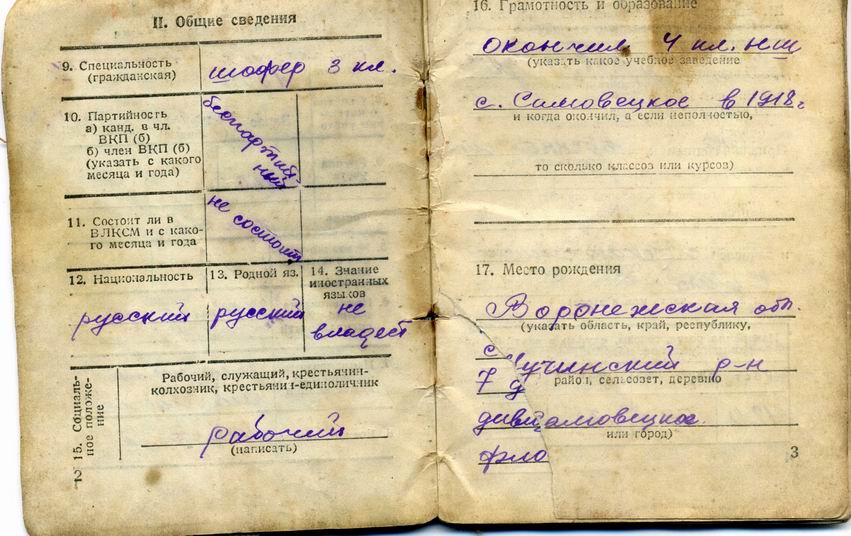 II. Общие сведения
9. Специальность
(гражданская)
шофер 3 кл.
10. Партийность
а) канд. в чл.
ВКП (б)
б) член ВКП (б)
(указать с какого
месяца и года)
беспартий-
ный
11. Состоит ли в
ВЛКСМ и с како-
го месяца и года
не состоит
12. Национальность
русский
13. Родной яз.
русский
14. Знание
иностранных
языков
не
владеет
15. Социаль-
ное положе-
ние
Рабочий, служащий, крестьянин-
колхозник, крестьянин-единоличник
рабочий
(написать)
2
16. Грамотность и образование
окончил 4 кл. нш
(указать какое учебное заведение
с. Симовецкое в 1918г
и когда окончил, а если неполностью,
то сколько классов или курсов)
17. Место рождения
Воронежская обл.
(указать область, край, республику,
р-н
7
район, сельсовет, деревню
или город)
3